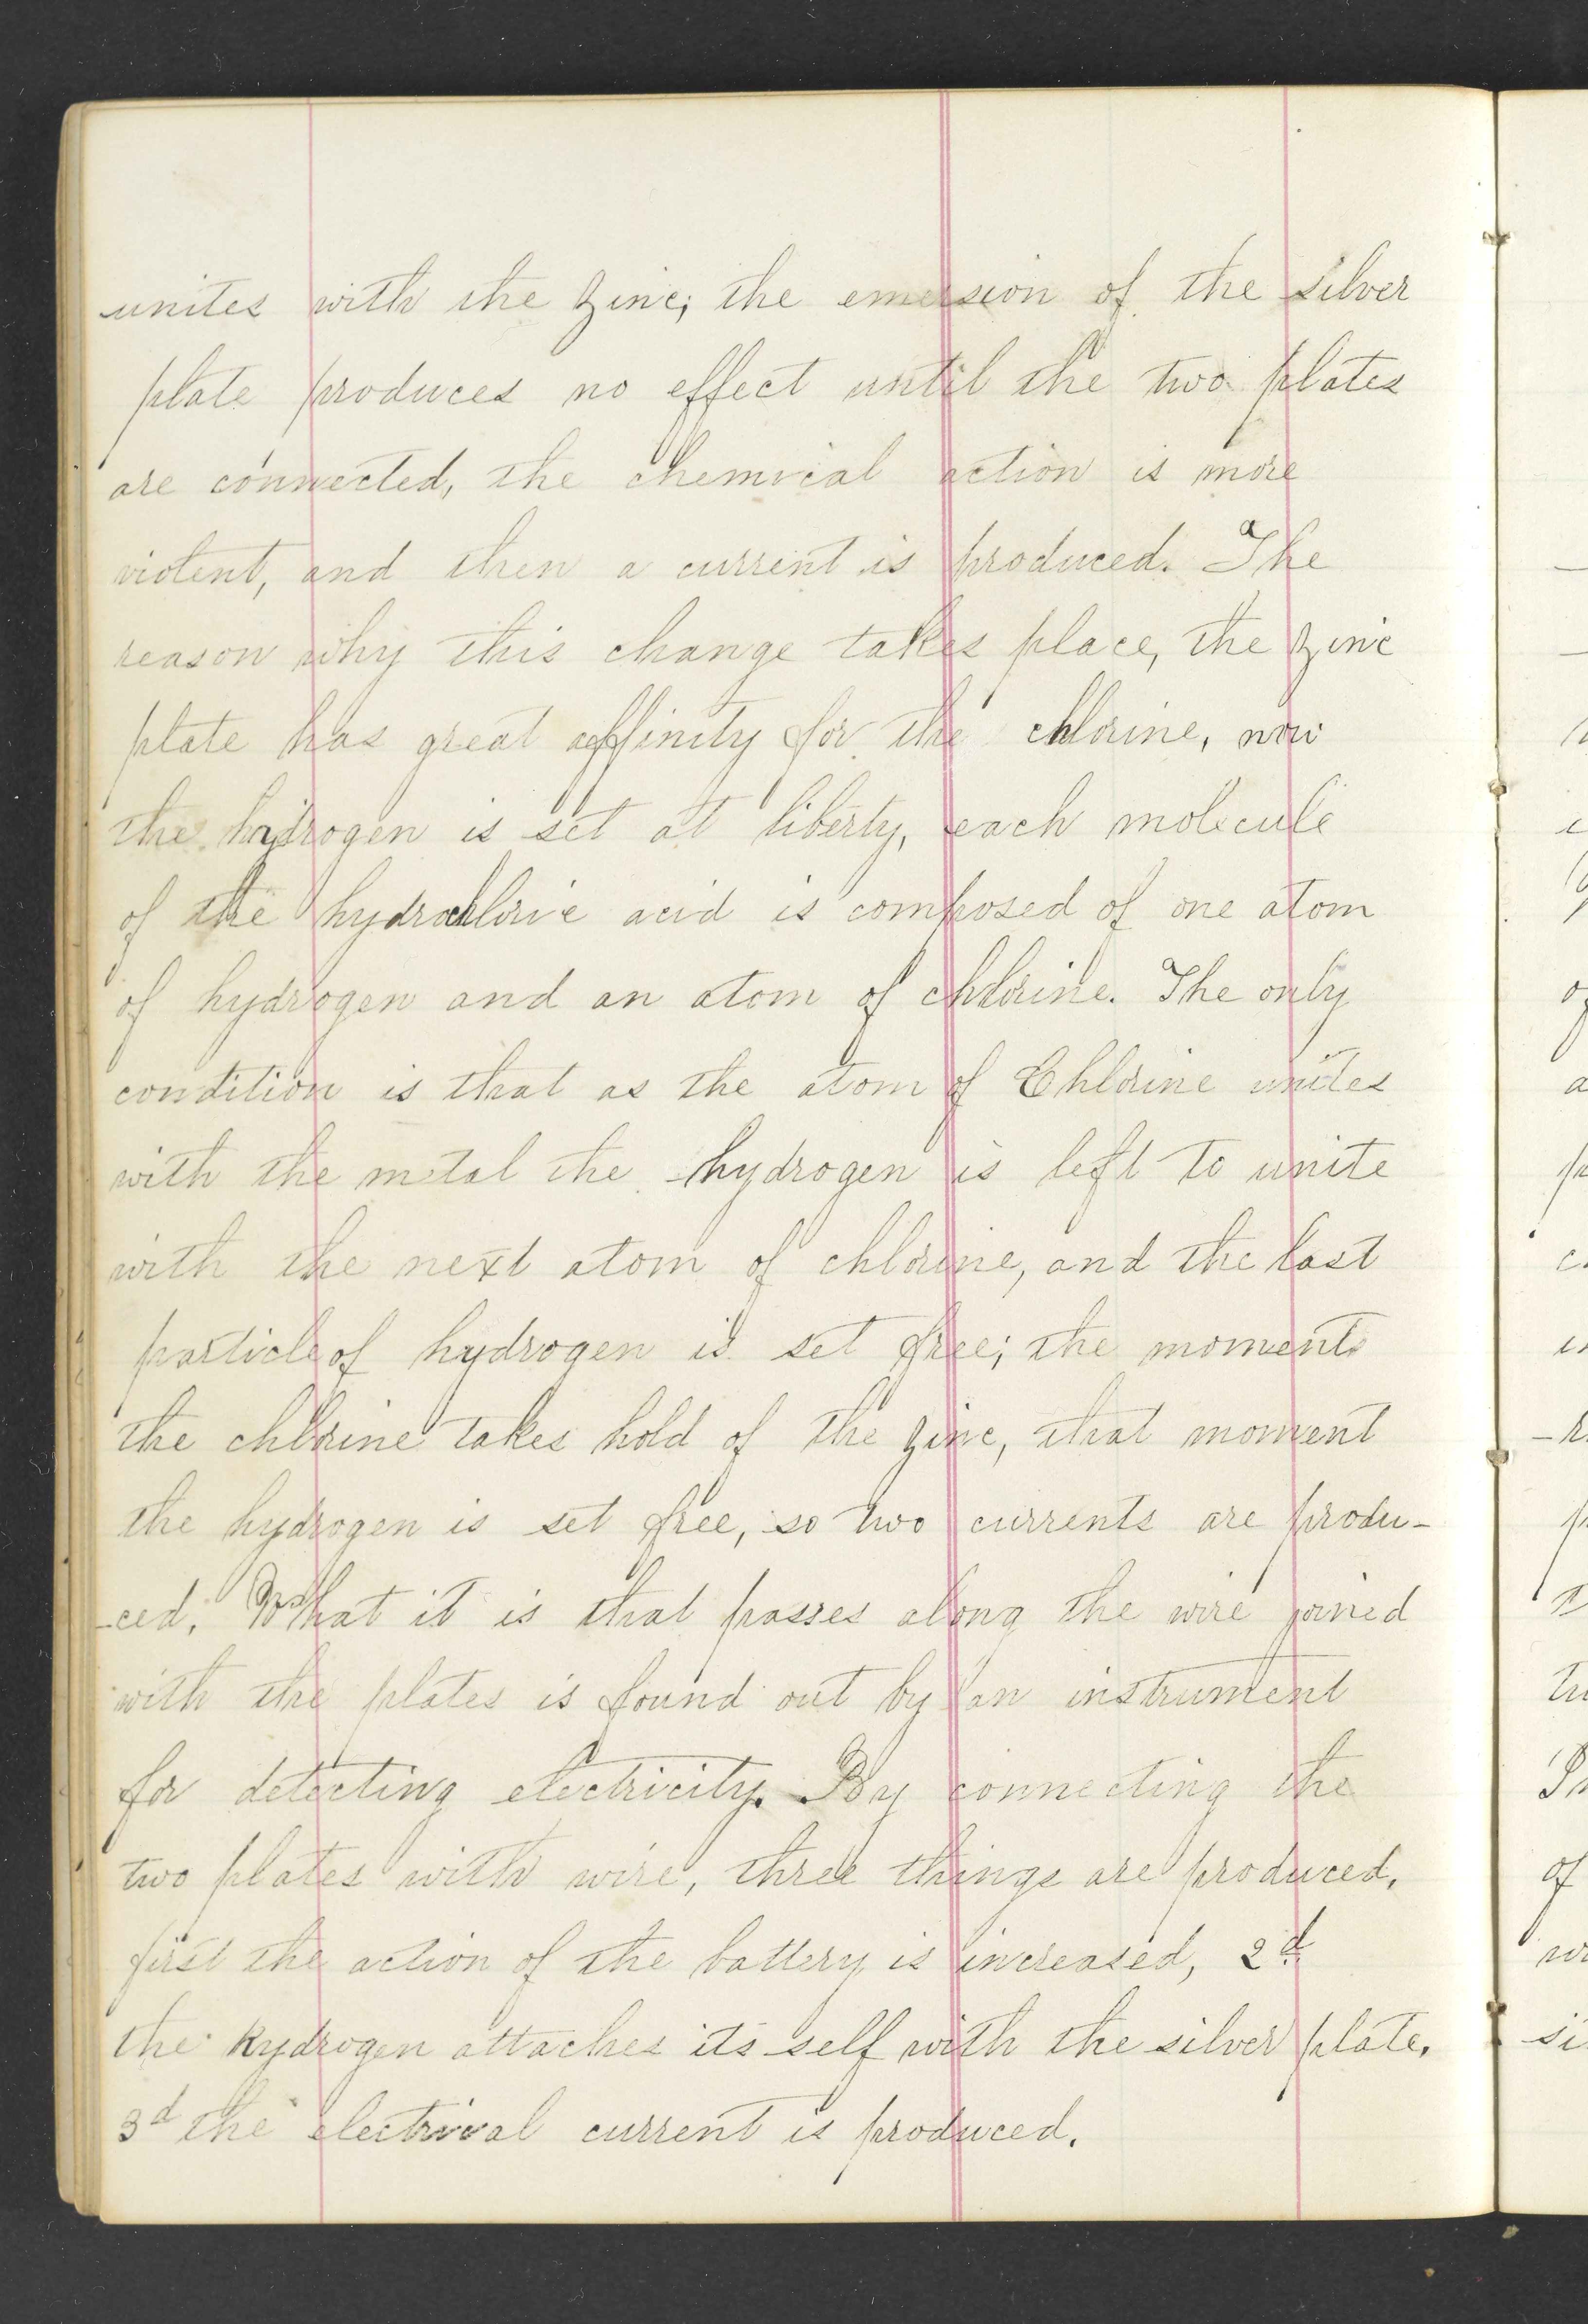 unites with the zinc; the emersion of the silver
plate produces no effect until the two plates
are connected, the chemical action is more
violent, and then a current is produced. The
reason why this change takes place, the zinc
plate has great affinity for the chlorine, now
the hydrogen is set at liberty, each molecule
of the hydrochloric acid is composed of one atom
of hydrogen and an atom of chlorine. The only
condition is that as the atom of Chlorine unites
with the metal the hydrogen is left to unite
with the next atom of chlorine, and the last
particle of hydrogen is set free; the moments
the chlorine takes hold of the zinc, that moment
the hydrogen is set free, so two currents are produ-
-ced. What it is that passes along the wire joined
with the plates is found out by an instrument
for detecting electricity. By connecting the
two plates with wire, three things are produced,
first the action of the battery is increased, 2d
the hydrogen attaches its self with the silver plate.
3d the electrical current is produced.